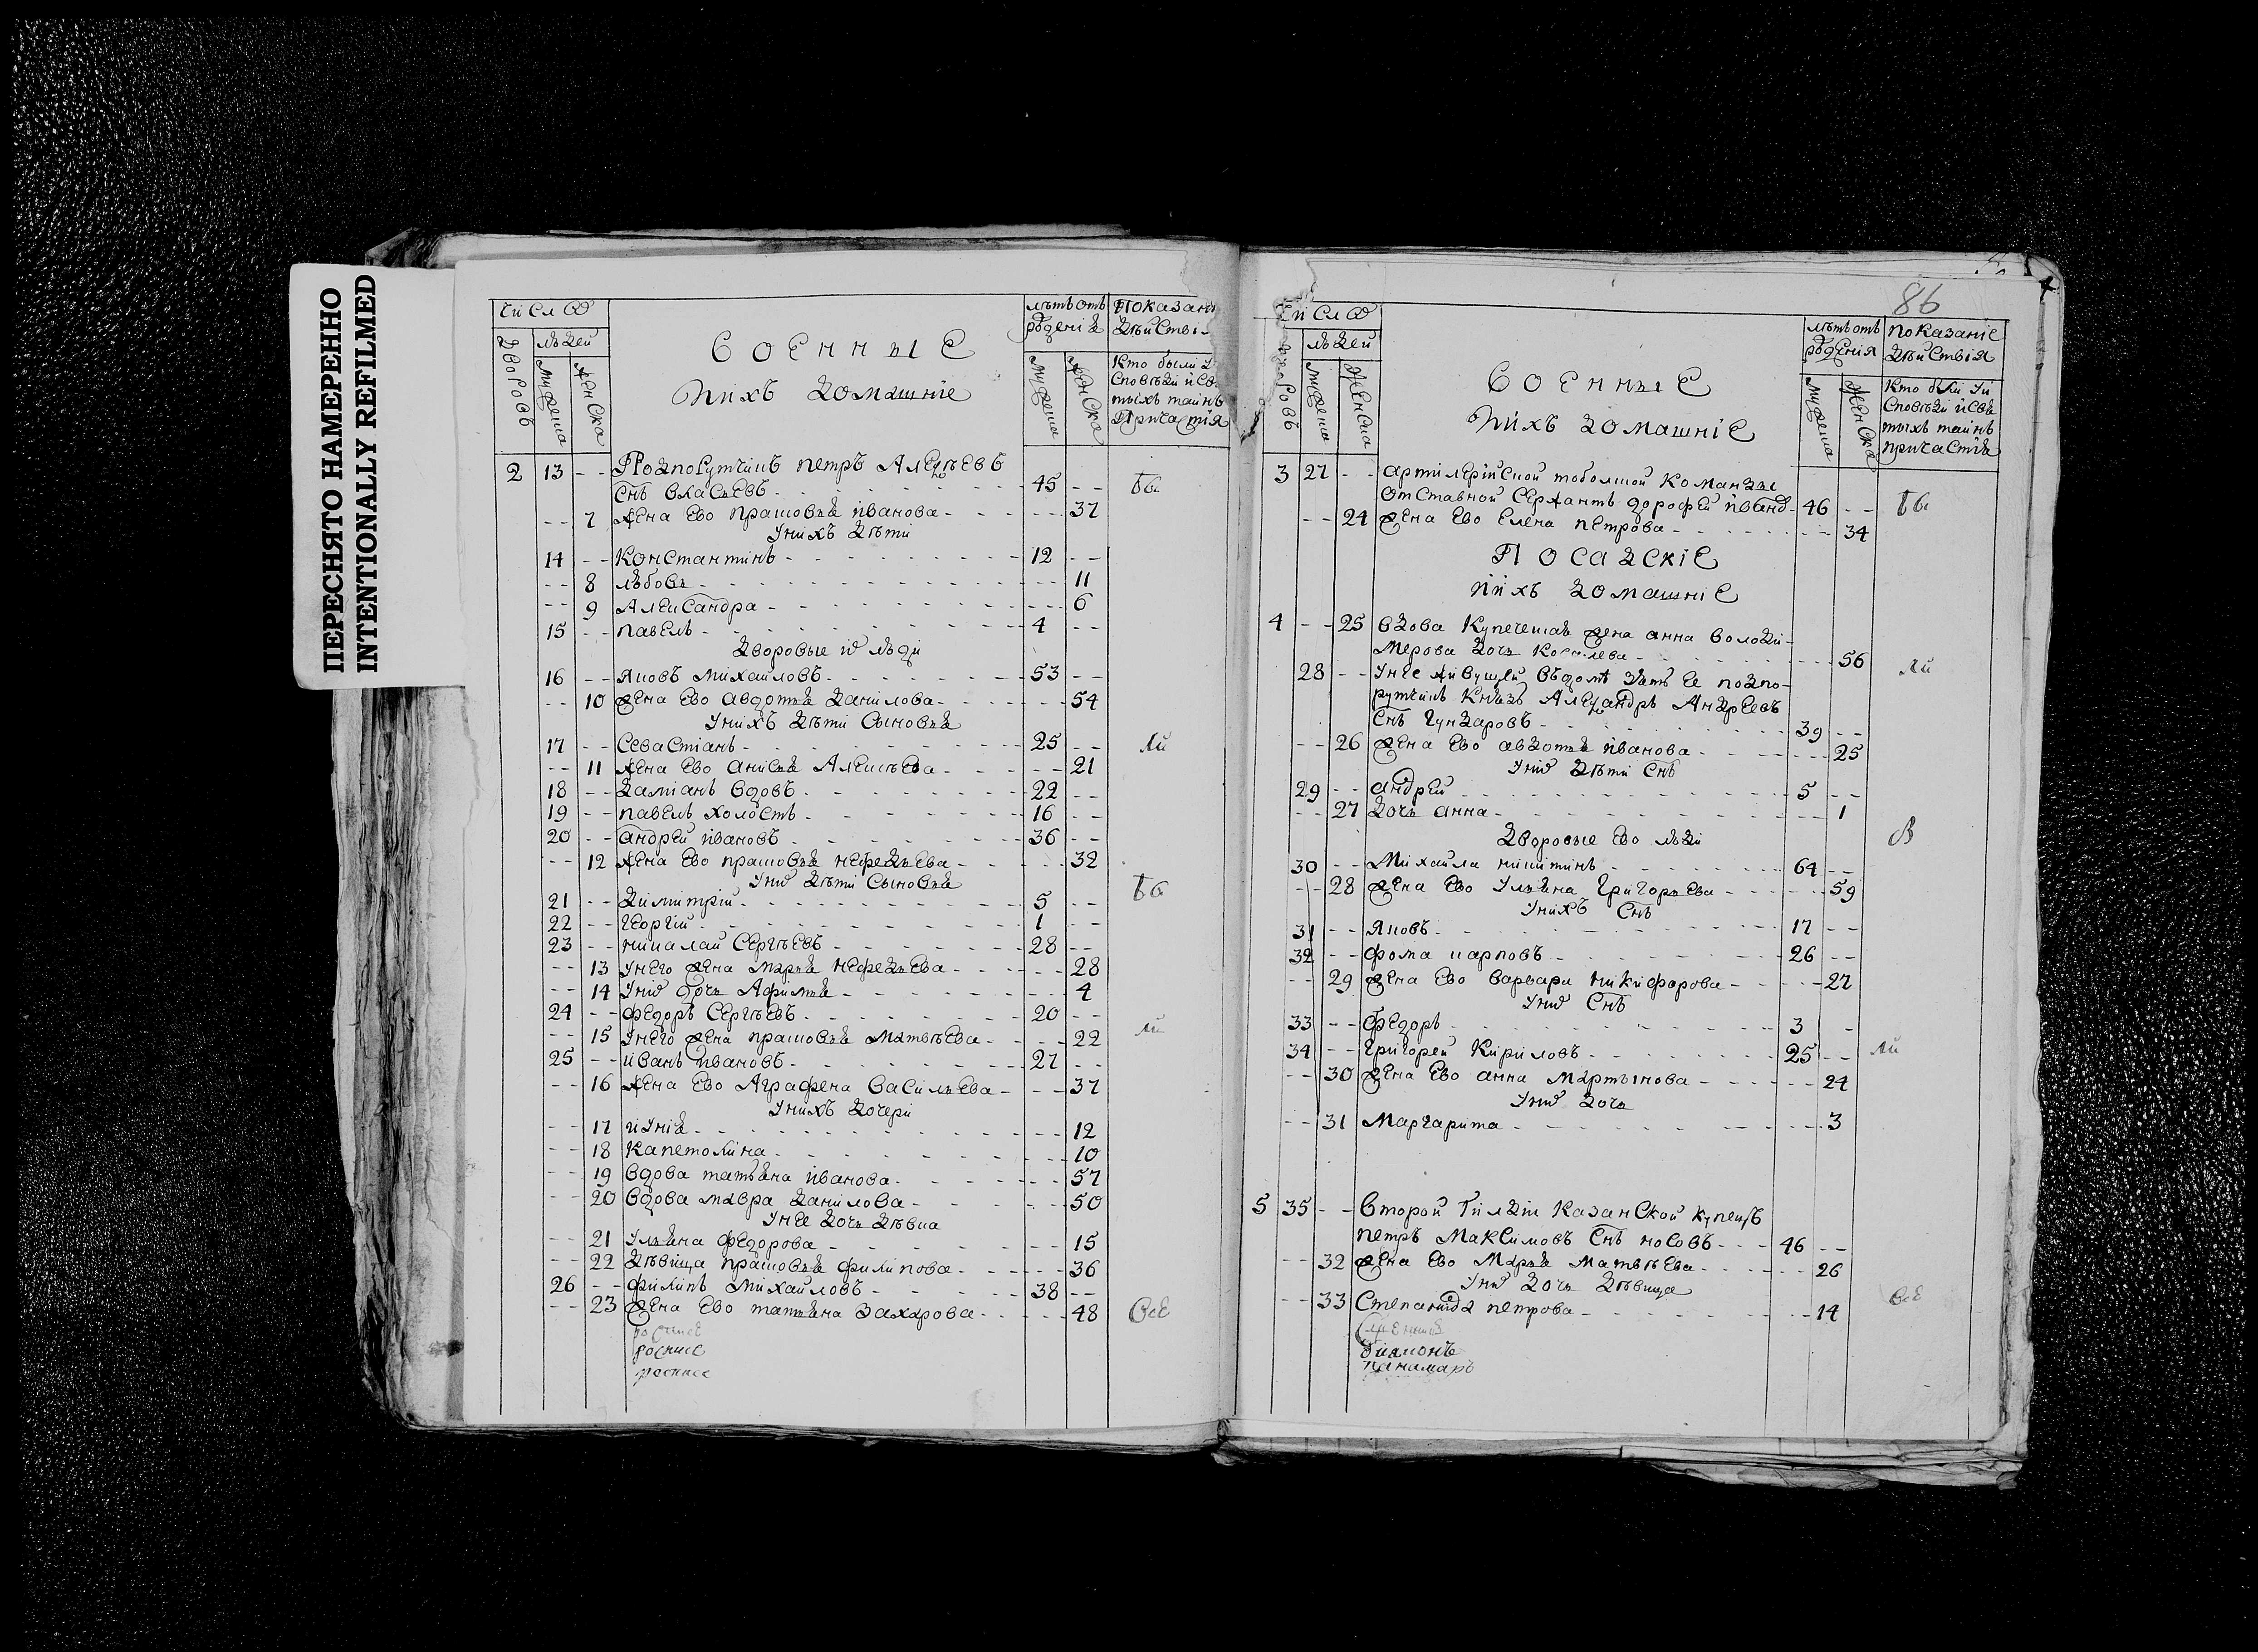 ПЕРЕСНЯТО НАМЕРЕННО
INTENTIONALLY REFILMED
Число
Дворовъ
людей
мужеска
женска
Военныіе
иихъ домашніе
лѣтъ отъ рожденія
мужеска
женска
Показані
Дѣйстві
Кто были у
споведи исв
тыхъ таинъ
Причастія
2 13 - - Подпорутчикъ петръ Алеѯѣевъ
снъ власьевъ - 45 - -
- - 7 жена ево прасковья иванова - - - 37
уніхъ дѣти
14 - - Константинъ - 12 - -
- - 8 любовь - - - 11
- - 9 Александра - - - 6
15 - - павелъ - 4 - -
дворовые ихъ люди
16 - - Яковъ михаиловъ - 53 - -
- - 10 жена ево авдотья данилова - - - 54
унихъ дѣти сыновья
17 - - Севастіанъ - 25 - -
- - 11 жена ево анисья Алексѣева - - - 21
18 - - даміанъ вдовъ - 22 - -
19 - - павелъ холостъ - 16 - -
20 - - андреи ивановъ - 36 - -
- - 12 жена ево прасковья нефедьева - - - 32
унихъ дѣти сыновья
21 - - димитріи - 5 - -
22 - - георгіи - 1 - -
23 - - николаи сергѣевъ - 28 - -
- - 13 унего жена марья нефедьева - - - 28
- - 14 унихъ дочь Афимья - - - 4
24 - - федоръ сергѣевъ - 20 - -
- - 15 унего жена прасковья матвѣева - - - 22
25 - - иванъ ивановъ - 27 - -
- - 16 жена ево Аграфена васильева - - - 37
унихъ дочери
- - 17 иунія - - - 12
- - 18 капетолина - - - 10
- - 19 вдова татьяна иванова - - - 57
- - 20 вдова мавра данилова - - - 50
унее дочь дѣвка
- - 21 ульяна федорова - - - 15
- - 22 дѣвица прасковья филипова - - - 36
26 - - филипъ михаиловъ - 38 - -
- - 23 жена ево татьяна захарова - - - 48 все
росписе
росписе
росписе
86
Число
дворовъ
людей
мужеска
женска
Военныіе
иихъ домашніе
лѣтъ отъ рожденія
мужеска
женска
показаніе
дѣйствія
Кто были уи
споведи исвя
тыхъ таинъ
причастія
3 27 - - артилерійской тобольской команды
отставной сержантъ дорофеи ивано 46 - -
- - 24 жена ево елена петрова - - - 34
Посадскіе
иихъ домашніе
4 - - 25 вдова купеческая жена анна володи-
мерова дочь - - - 56
28 - - унее живущеи въдомѣ зять ее подпо-
рутчикъ князь Алеѯандръ Андреевъ
снъ гундаровъ - 39 - -
- - 26 жена ево авдотья иванова - - - 25
унихъ дѣти снъ
29 - - андреи - 5 - -
- - 27 дочь анна - - - 1
дворовые ево люди
30 - - михаила никитинъ - 64 - -
- - 28 жена ево ульяна григорьева - - - 59
унихъ снъ
31 - - Яковъ - 17 - -
32 - - фома карповъ - 26 - -
- - 29 жена ево варвара никифорова - - - 27
унихъ снъ
33 - - федоръ - 3 -
34 - - григореи кириловъ - 25 - -
- - 30 жена ево анна мартынова - - - 24
унихъ дочь
- - 31 маргарита - - - 3
5 35 - - второй гилдіи казанской купецъ
петръ максимовъ снъ носовъ - 46 - -
- - 32 жена ево марья матвѣева - - - 26
унихъ дочь дѣвица
- - 33 степанида петрова - - - 14 все
дияконъ
панамарь